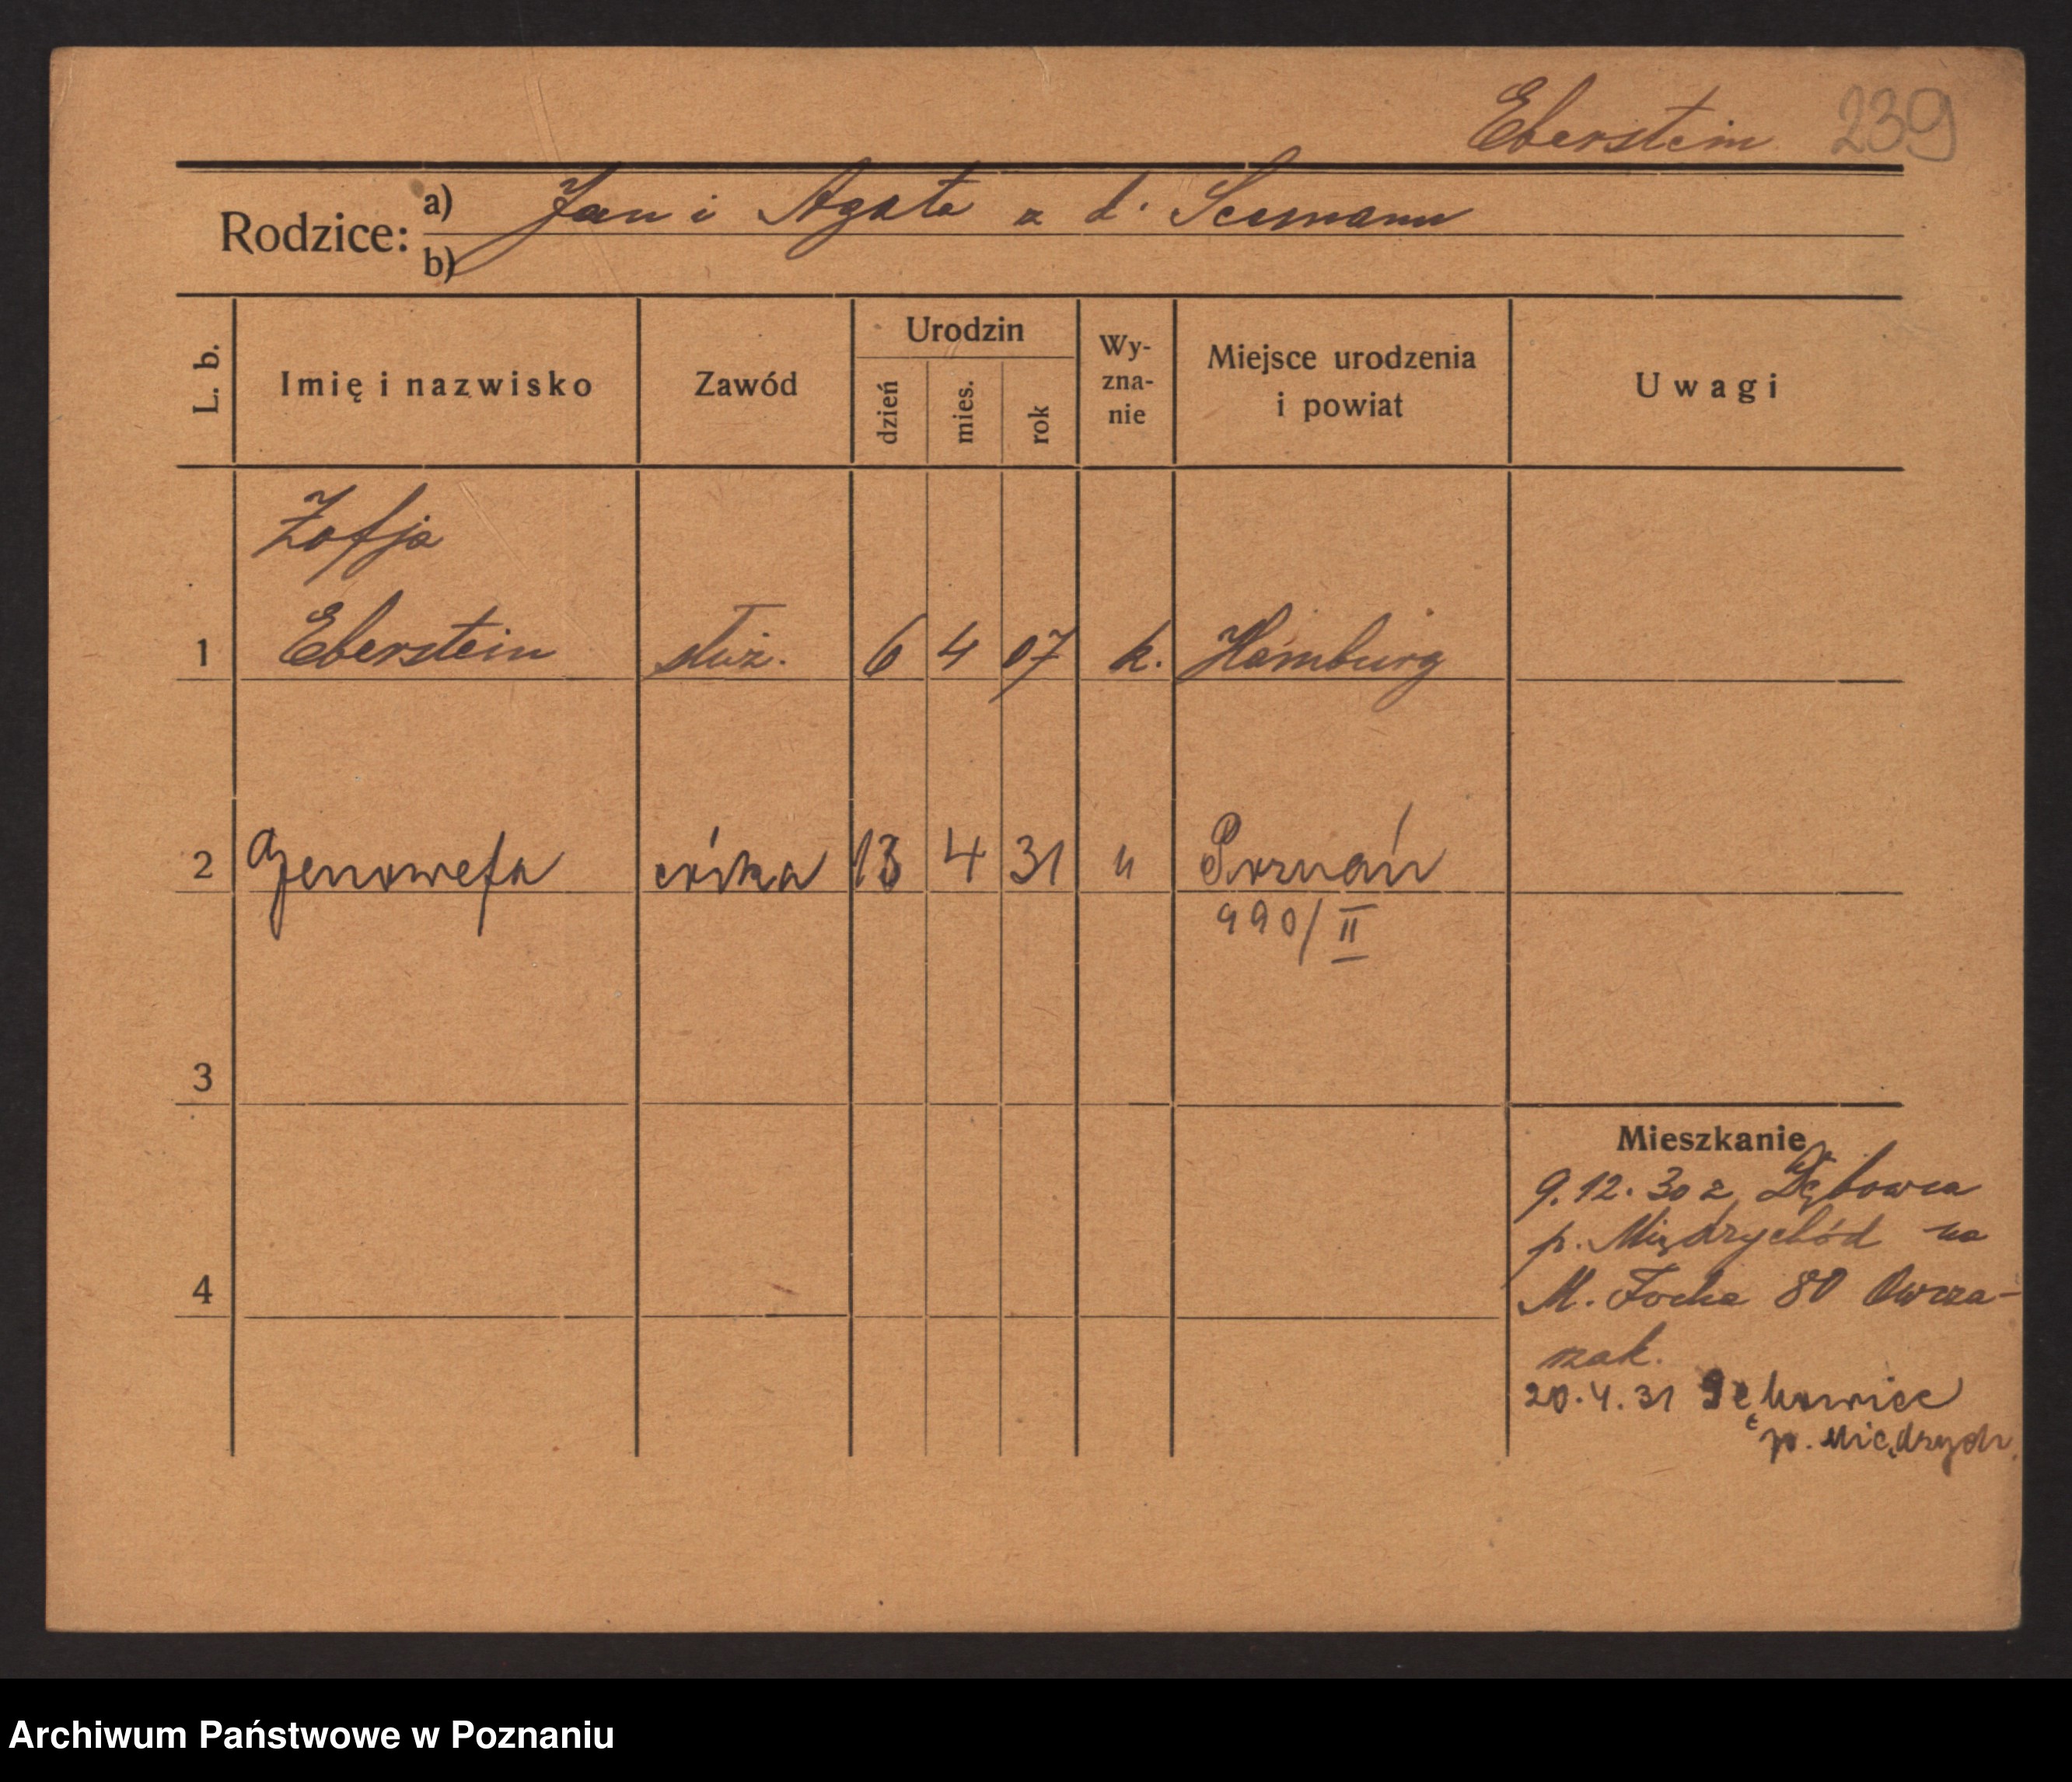 Eberstein 239
Rodzice: a) Jan i Agata z d. Seemann
b)
L. b.
Imię i nazwisko
Zawód
Urodzin
dzień
mies.
rok
Wy-
zna-
nie
Miejsce urodzenia
i powiat
Uwagi
Zofja
1 Eberstein służ. 6 4 07 k. Hamburg
2 Genowefa córka 13 4 31 " Poznań
990/II
3
4
Mieszkanie
9.12.30 z Dębowca
p. Międzychód na
M. Focha 80 Owcza-
rzak.
20.4.31
p. Międzych.
Archiwum Państwowe w Poznaniu